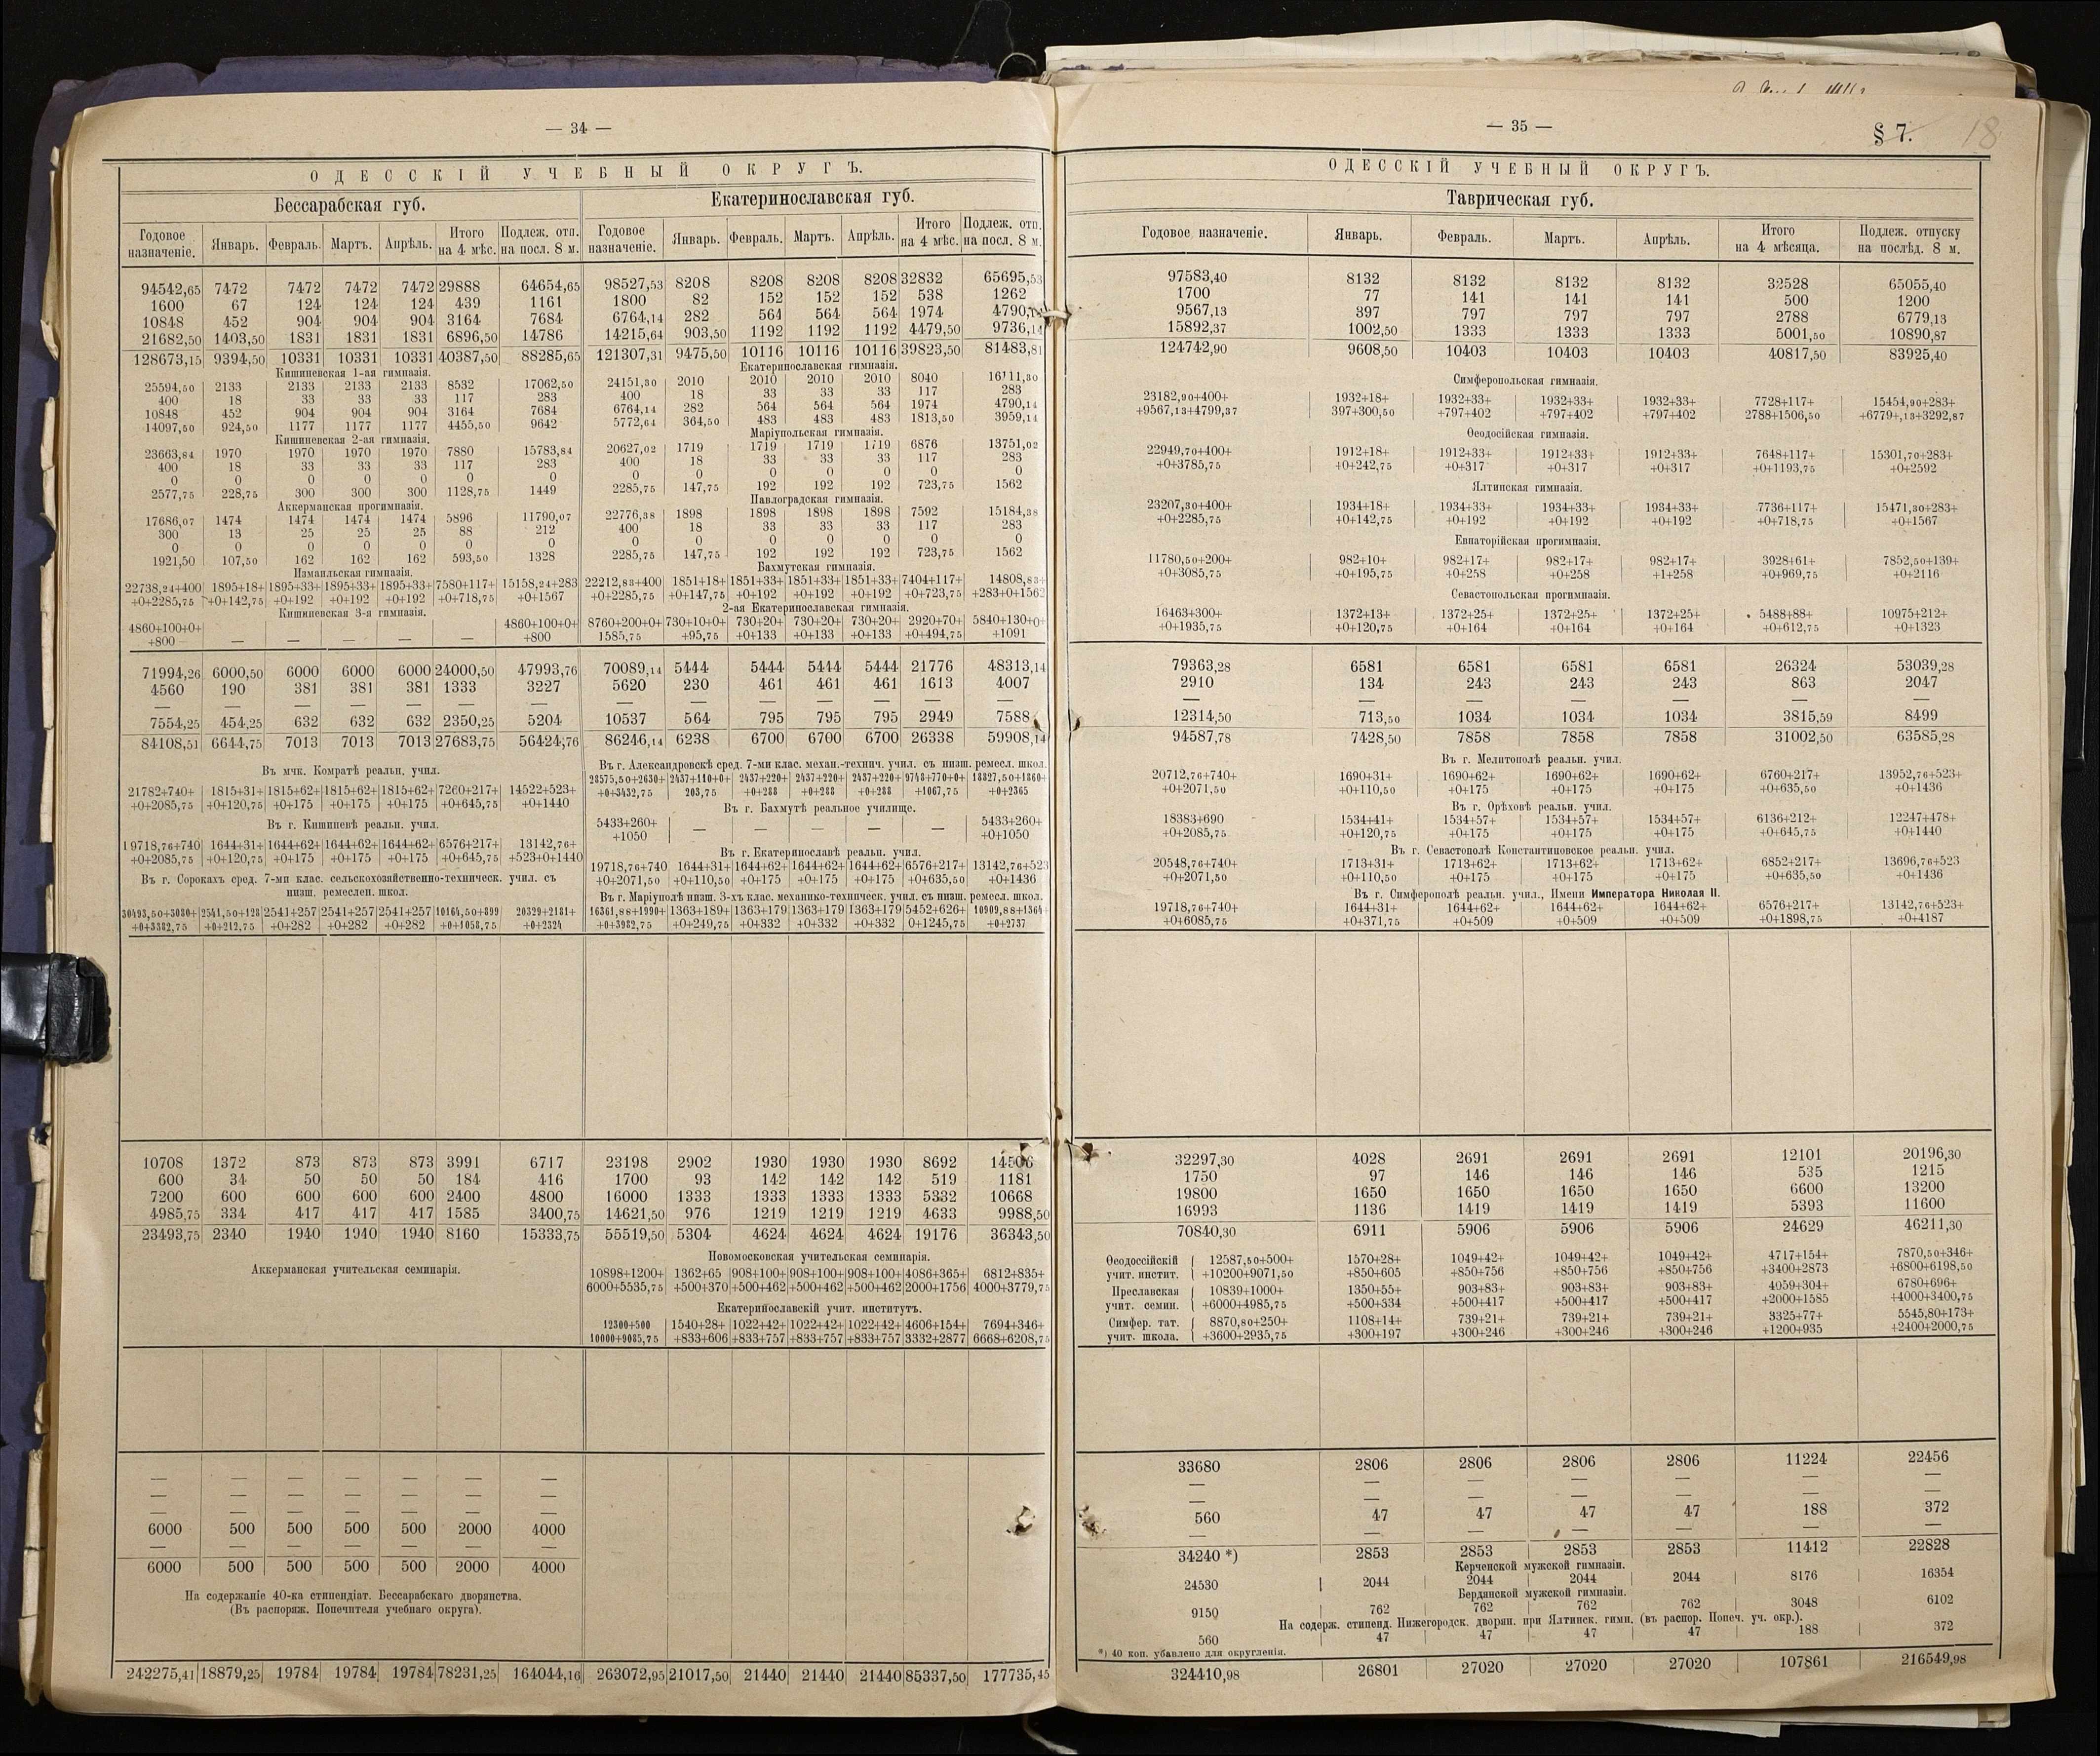 — 34 —
ОДЕССКІЙ УЧЕБНЫЙ ОКРУГЪ.
Бессарабская губ. Екатеринославская губ.
Годовое назначеніе. Январь. Февраль. Мартъ. Апрѣль. Итого на 4 мѣс. Подлеж. отп. на посл. 8 м. Годовое назначеніе. Январь. Февраль. Мартъ. Апрѣль. Итого на 4 мѣс. Подлеж. отп. на посл. 8 м.
94542,65 7472 7472 7472 7472 29888 64654,65 98527,53 8208 8208 8208 8208 32832 65695,53
1600 67 124 124 124 439 1161 1800 82 152 152 152 538 1262
10848 452 904 904 904 3164 7684 6764,14 282 564 564 564 1974 4790,14
21682,50 1403,50 1831 1831 1831 6896,50 14786 14215,64 903,50 1192 1192 1192 4479,50 9736,14
128673,15 9394,50 10331 10331 10331 40387,50 88285,65 121307,31 9475,50 10116 10116 10116 39823,50 81483,81
Кишиневская 1-ая гимназія. Екатеринославская гимназія.
25594,50 2133 2133 2133 2133 8532 17062,50 24151,30 2010 2010 2010 2010 8040 16111,30
400 18 33 33 33 117 283 400 18 33 33 33 117 283
10848 452 904 904 904 3164 7684 6764,14 282 564 564 564 1974 4790,14
14097,50 924,50 1177 1177 1177 4455,50 9642 5772,64 364,50 483 483 483 1813,50 3959,14
Кишиневская 2-ая гимназія. Маріупольская гимназія.
23663,84 1970 1970 1970 1970 7880 15783,84 20627,02 1719 1719 1719 1719 6876 13751,02
400 18 33 33 33 117 283 400 18 33 33 33 117 283
0 0 0 0 0 0 0 0 0 0 0 0 0 0
2577,75 228,75 300 300 300 1128,75 1449 2285,75 147,75 192 192 192 723,75 1562
Аккерманская прогимназія. Павлоградская гимназія.
17686,07 1474 1474 1474 1474 5896 11790,07 22776,38 1898 1898 1898 1898 7592 15184,38
300 13 25 25 25 88 212 400 18 33 33 33 117 283
0 0 0 0 0 0 0 0 0 0 0 0 0 0
1921,50 107,50 162 162 162 593,50 1328 2285,75 147,75 192 192 192 723,75 1562
Измаильская гимназія. Бахмутская гимназія.
22738,24+400 1895+18+ 1895+33+ 1895+33+ 1895+33+ 7580+117+ 15158,24+283 22212,83+400 1851+18+ 1851+33+ 1851+33+ 1851+33+ 7404+117+ 14808,83+
+0+2285,75 +0+142,75 +0+192 +0+192 +0+192 +0+718,75 +0+1567 +0+2285,75 +0+147,75 +0+192 +0+192 +0+192 +0+723,75 +283+0+1562
Кишиневская 3-я гимназія. 2-ая Екатеринославская гимназія.
4860+100+0+ 4860+100+0+ 8760+200+0+ 730+10+0+ 730+20+ 730+20+ 730+20+ 2920+70+ 5840+130+0+
+800 — — — — — +800 1585,75 +95,75 +0+133 +0+133 +0+133 +0+494,75 +1091
71994,26 6000,50 6000 6000 6000 24000,50 47993,76 70089,14 5444 5444 5444 5444 21776 48313,14
4560 190 381 381 381 1333 3227 5620 230 461 461 461 1613 4007
— — — — — — — — — — — — — —
7554,25 454,25 632 632 632 2350,25 5204 10537 564 795 795 795 2949 7588
84108,51 6644,75 7013 7013 7013 27683,75 56424,76 86246,14 6238 6700 6700 6700 26338 59908,14
Въ мчк. Комратѣ реальн. учил. Въ г. Александровскѣ сред. 7-ми клас. механ.-технич. учил. съ низш. ремесл. школ.
28575,50+2630+ 2437+110+0+ 2437+220+ 2437+220+ 2437+220+ 9748+770+0+ 18827,50+1860+
21782+740+ 1815+31+ 1815+62+ 1815+62+ 1815+62+ 7260+217+ 14522+523+ +0+3432,75 203,75 +0+288 +0+288 +0+288 +1067,75 +0+2365
+0+2085,75 +0+120,75 +0+175 +0+175 +0+175 +0+645,75 +0+1440 Въ г. Бахмутѣ реальное училище.
Въ г. Кишиневѣ реальн. учил. 5433+260+ 5433+260+
+1050 — — — — — +0+1050
19718,76+740 1644+31+ 1644+62+ 1644+62+ 1644+62+ 6576+217+ 13142,76+ Въ г. Екатеринославѣ реальн. учил.
+0+2085,75 +0+120,75 +0+175 +0+175 +0+175 +0+645,75 +523+0+1440 19718,76+740 1644+31+ 1644+62+ 1644+62+ 1644+62+ 6576+217+ 13142,76+523
Въ г. Сорокахъ сред. 7-ми клас. сельскохозяйственно-техническ. учил. съ +0+2071,50 +0+110,50 +0+175 +0+175 +0+175 +0+635,50 +0+1436
низш. ремеслен. школ. Въ г. Маріуполѣ низш. 3-хъ клас. механико-техническ. учил. съ низш. ремесл. школ.
30493,50+3080+ 2541,50+128 2541+257 2541+257 2541+257 10164,50+899 20329+2181+ 16361,88+1990+ 1363+189+ 1363+179 1363+179 1363+179 5452+626+ 10909,88+1364+
+0+3382,75 +0+212,75 +0+282 +0+282 +0+282 +0+1058,75 +0+2324 +0+3982,75 +0+249,75 +0+332 +0+332 +0+332 0+1245,75 +0+2737
10708 1372 873 873 873 3991 6717 23198 2902 1930 1930 1930 8692 14506
600 34 50 50 50 184 416 1700 93 142 142 142 519 1181
7200 600 600 600 600 2400 4800 16000 1333 1333 1333 1333 5332 10668
4985,75 334 417 417 417 1585 3400,75 14621,50 976 1219 1219 1219 4633 9988,50
23493,75 2340 1940 1940 1940 8160 15333,75 55519,50 5304 4624 4624 4624 19176 36343,50
Новомосковская учительская семинарія.
Аккерманская учительская семинарія. 10898+1200+ 1362+65 908+100+ 908+100+ 908+100+ 4086+365+ 6812+835+
6000+5535,75 +500+370 +500+462 +500+462 +500+462 2000+1756 4000+3779,75
Екатеринославскій учит. институтъ.
12300+500 1540+28+ 1022+42+ 1022+42+ 1022+42+ 4606+154+ 7694+346+
10000+9085,75 +833+606 +833+757 +833+757 +833+757 3332+2877 6668+6208,75
— — — — — — —
— — — — — — —
— — — — — — —
6000 500 500 500 500 2000 4000
— — — — — — —
6000 500 500 500 500 2000 4000
На содержаніе 40-ка стипендіат. Бессарабскаго дворянства.
(Въ распоряж. Попечителя учебнаго округа).
242275,41 18879,25 19784 19784 19784 78231,25 164044,16 263072,95 21017,50 21440 21440 21440 85337,50 177735,45
— 35 —
§ 7. 18
ОДЕССКІЙ УЧЕБНЫЙ ОКРУГЪ.
Таврическая губ.
Годовое назначеніе. Январь. Февраль. Мартъ. Апрѣль. Итого на 4 мѣсяца. Подлеж. отпуску на послѣд. 8 м.
97583,40 8132 8132 8132 8132 32528 65055,40
1700 77 141 141 141 500 1200
9567,13 397 797 797 797 2788 6779,13
15892,37 1002,50 1333 1333 1333 5001,50 10890,87
124742,90 9608,50 10403 10403 10403 40817,50 83925,40
Симферопольская гимназія.
23182,90+400+ 1932+18+ 1932+33+ 1932+33+ 1932+33+ 7728+117+ 15454,90+283+
+9567,13+4799,37 397+300,50 +797+402 +797+402 +797+402 2788+1506,50 +6779+,13+3292,87
Ѳеодосійская гимназія.
22949,70+400+ 1912+18+ 1912+33+ 1912+33+ 1912+33+ 7648+117+ 15301,70+283+
+0+3785,75 +0+242,75 +0+317 +0+317 +0+317 +0+1193,75 +0+2592
Ялтинская гимназія.
23207,30+400+ 1934+18+ 1934+33+ 1934+33+ 1934+33+ 7736+117+ 15471,30+283+
+0+2285,75 +0+142,75 +0+192 +0+192 +0+192 +0+718,75 +0+1567
Евпаторійская прогимназія.
11780,50+200+ 982+10+ 982+17+ 982+17+ 982+17+ 3928+61+ 7852,50+139+
+0+3085,75 +0+195,75 +0+258 +0+258 +1+258 +0+969,75 +0+2116
Севастопольская прогимназія.
16463+300+ 1372+13+ 1372+25+ 1372+25+ 1372+25+ 5488+88+ 10975+212+
+0+1935,75 +0+120,75 +0+164 +0+164 +0+164 +0+612,75 +0+1323
79363,28 6581 6581 6581 6581 26324 53039,28
2910 134 243 243 243 863 2047
— — — — — — —
12314,50 713,50 1034 1034 1034 3815,59 8499
94587,78 7428,50 7858 7858 7858 31002,50 63585,28
Въ г. Мелитополѣ реальн. учил.
20712,76+740+ 1690+31+ 1690+62+ 1690+62+ 1690+62+ 6760+217+ 13952,76+523+
+0+2071,50 +0+110,50 +0+175 +0+175 +0+175 +0+635,50 +0+1436
Въ г. Орѣховѣ реальн. учил.
18383+690 1534+41+ 1534+57+ 1534+57+ 1534+57+ 6136+212+ 12247+478+
+0+2085,75 +0+120,75 +0+175 +0+175 +0+175 +0+645,75 +0+1440
Въ г. Севастополѣ Константиновское реальн. учил.
20548,76+740+ 1713+31+ 1713+62+ 1713+62+ 1713+62+ 6852+217+ 13696,76+523
+0+2071,50 +0+110,50 +0+175 +0+175 +0+175 +0+635,50 +0+1436
Въ г. Симферополѣ реальн. учил., Имени Императора Николая II.
19718,76+740+ 1644+31+ 1644+62+ 1644+62+ 1644+62+ 6576+217+ 13142,76+523+
+0+6085,75 +0+371,75 +0+509 +0+509 +0+509 +0+1898,75 +0+4187
32297,30 4028 2691 2691 2691 12101 20196,30
1750 97 146 146 146 535 1215
19800 1650 1650 1650 1650 6600 13200
16993 1136 1419 1419 1419 5393 11600
70840,30 6911 5906 5906 5906 24629 46211,30
Ѳеодоссійскій 12587,50+500+ 1570+28+ 1049+42+ 1049+42+ 1049+42+ 4717+154+ 7870,50+346+
учит. инстит. +10200+9071,50 +850+605 +850+756 +850+756 +850+756 +3400+2873 +6800+6198,50
Преславская 10839+1000+ 1350+55+ 903+83+ 903+83+ 903+83+ 4059+304+ 6780+696+
учит. семин. +6000+4985,75 +500+334 +500+417 +500+417 +500+417 +2000+1585 +4000+3400,75
Симфер. тат. 8870,80+250+ 1108+14+ 739+21+ 739+21+ 739+21+ 3325+77+ 5545,80+173+
учит. школа. +3600+2935,75 +300+197 +300+246 +300+246 +300+246 +1200+935 +2400+2000,75
33680 2806 2806 2806 2806 11224 22456
— — — — — — —
— — — — — — —
560 47 47 47 47 188 372
— — — — — — —
34240 *) 2853 2853 2853 2853 11412 22828
Керченской мужской гимназіи.
24530 2044 2044 2044 2044 8176 16354
Бердянской мужской гимназіи.
9150 762 762 762 762 3048 6102
На содерж. стипенд. Нижегородск. дворян. при Ялтинск. гимн. (въ распор. Попеч. уч. окр.).
560 47 47 47 47 188 372
*) 40 коп. убавлено для округленія.
324410,98 26801 27020 27020 27020 107861 216549,98